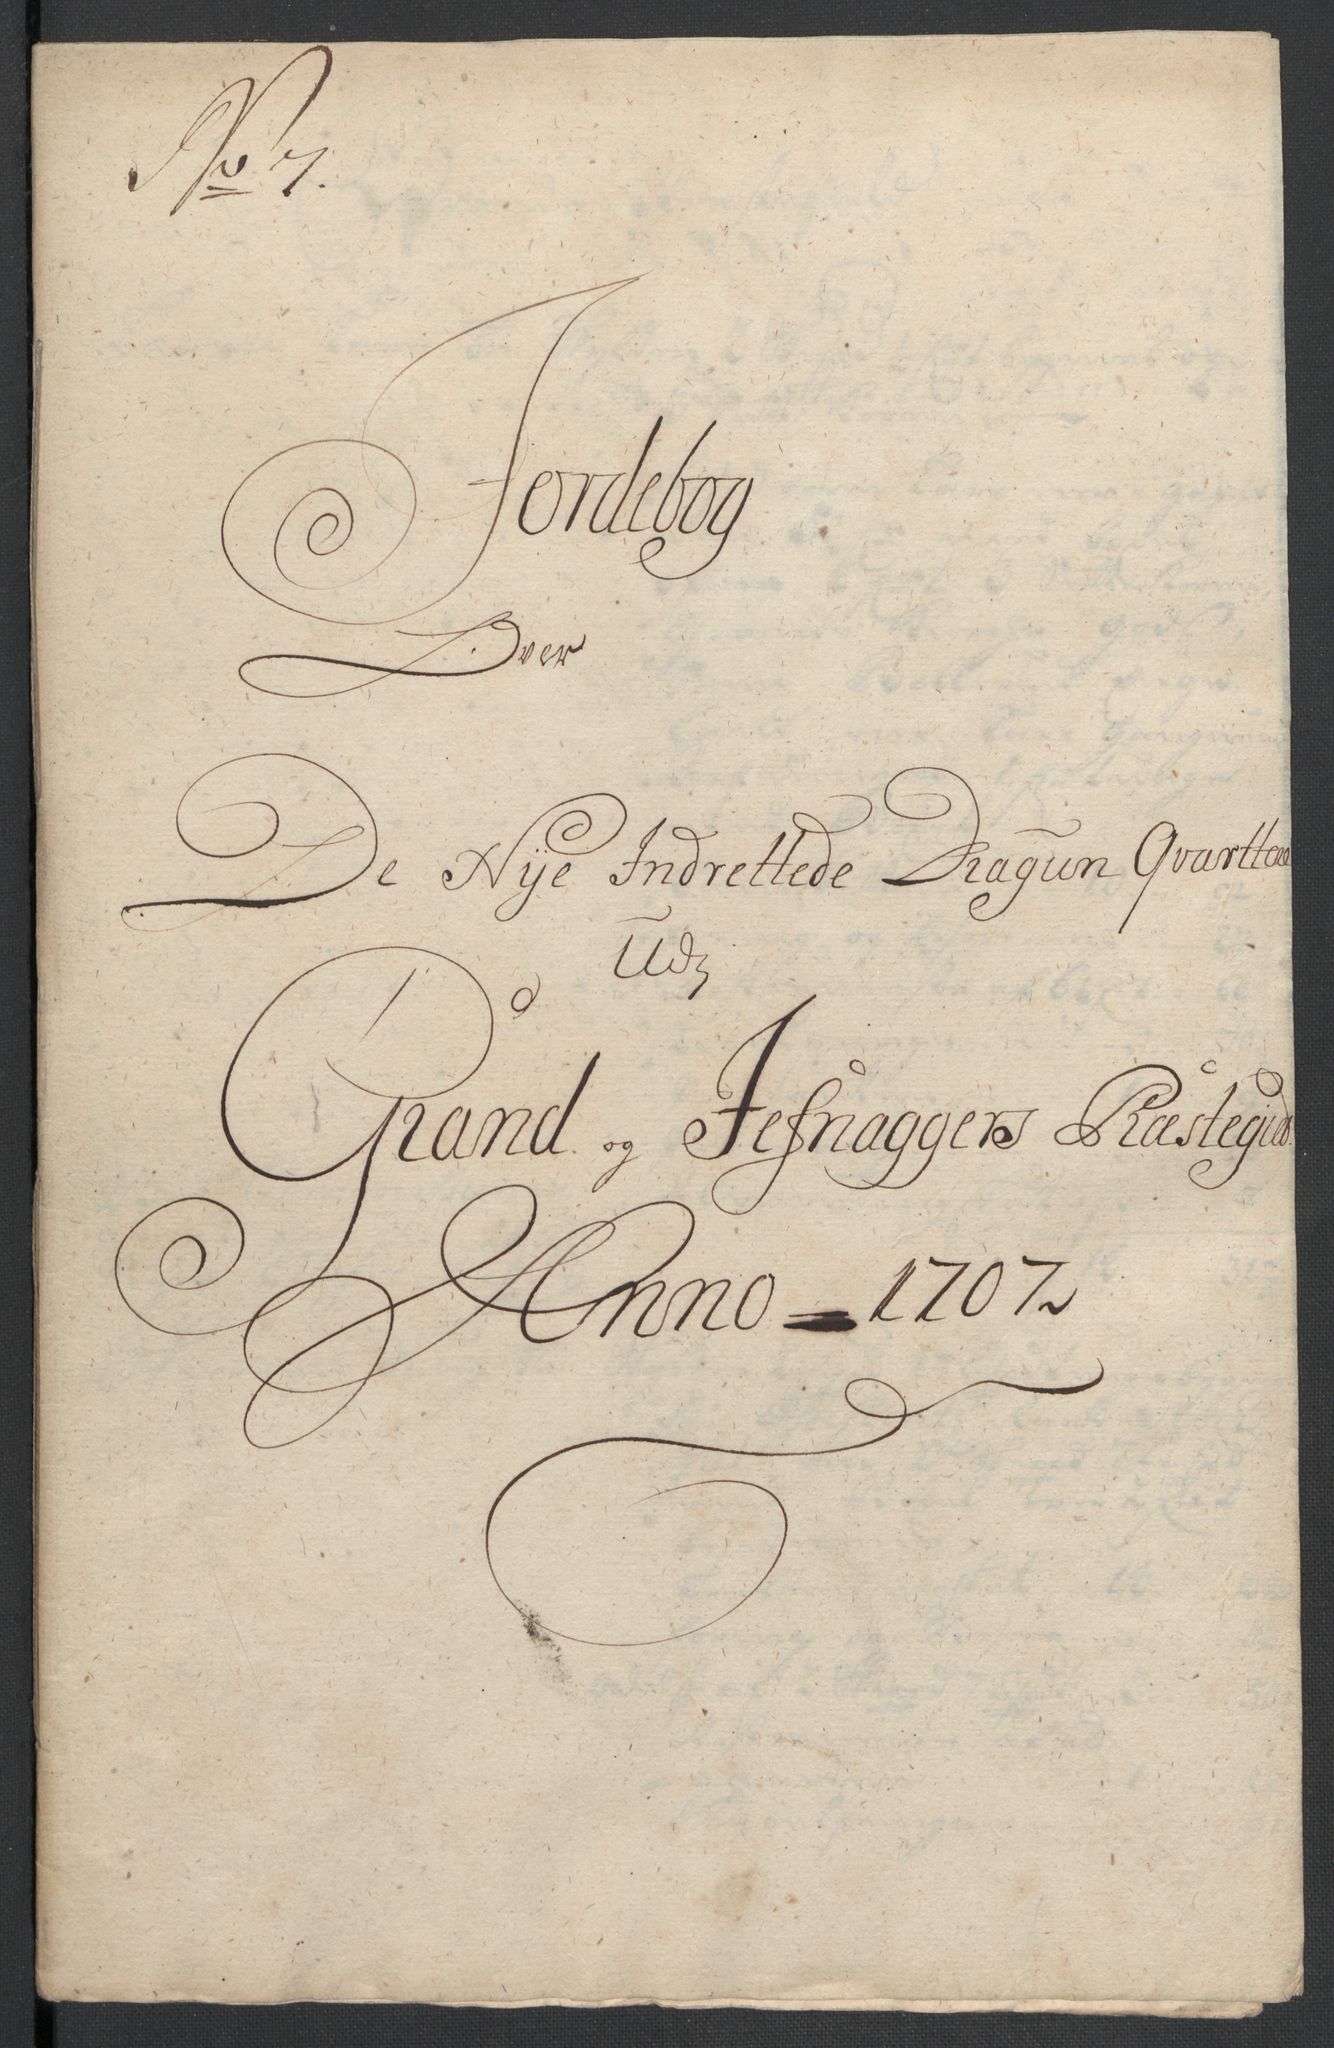 No 7.
Jordebog
Over
De Nÿe Indrettede Dragŭn Qvartteer
Udj
Grand og Jefnaggers Præstegield.
Anno = 1707